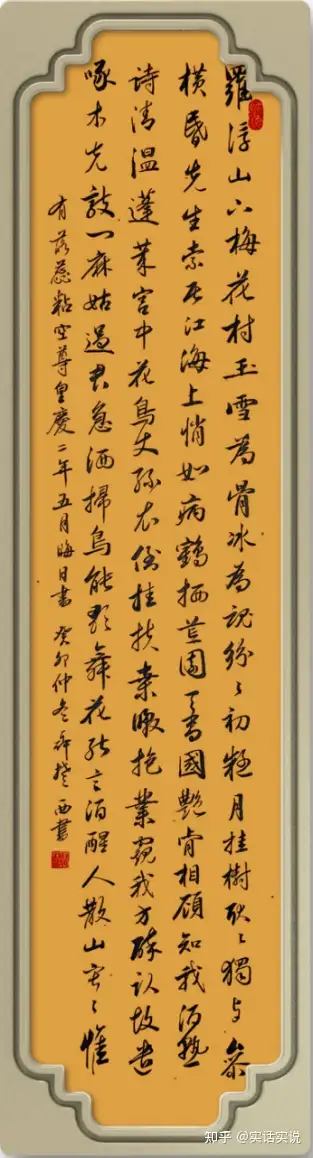 羅浮山下梅花村玉雪為骨冰為魂紛々初疑月挂樹耿々獨与參
橫昏先生索居江海上悄如病鶴栖荒園天香國艷肯相顧知我酒熟
詩清溫蓬萊宮中花鳥使綠衣倒挂扶桒暾抱叢窺我方醉卧故遣
啄木先敲門麻姑過君急洒掃鳥能歌舞花能言酒醒人散山寂々惟
有落蕊粘空尊皇慶二年五月晦日書 癸卯仲冬 西書
知乎 @实话实说